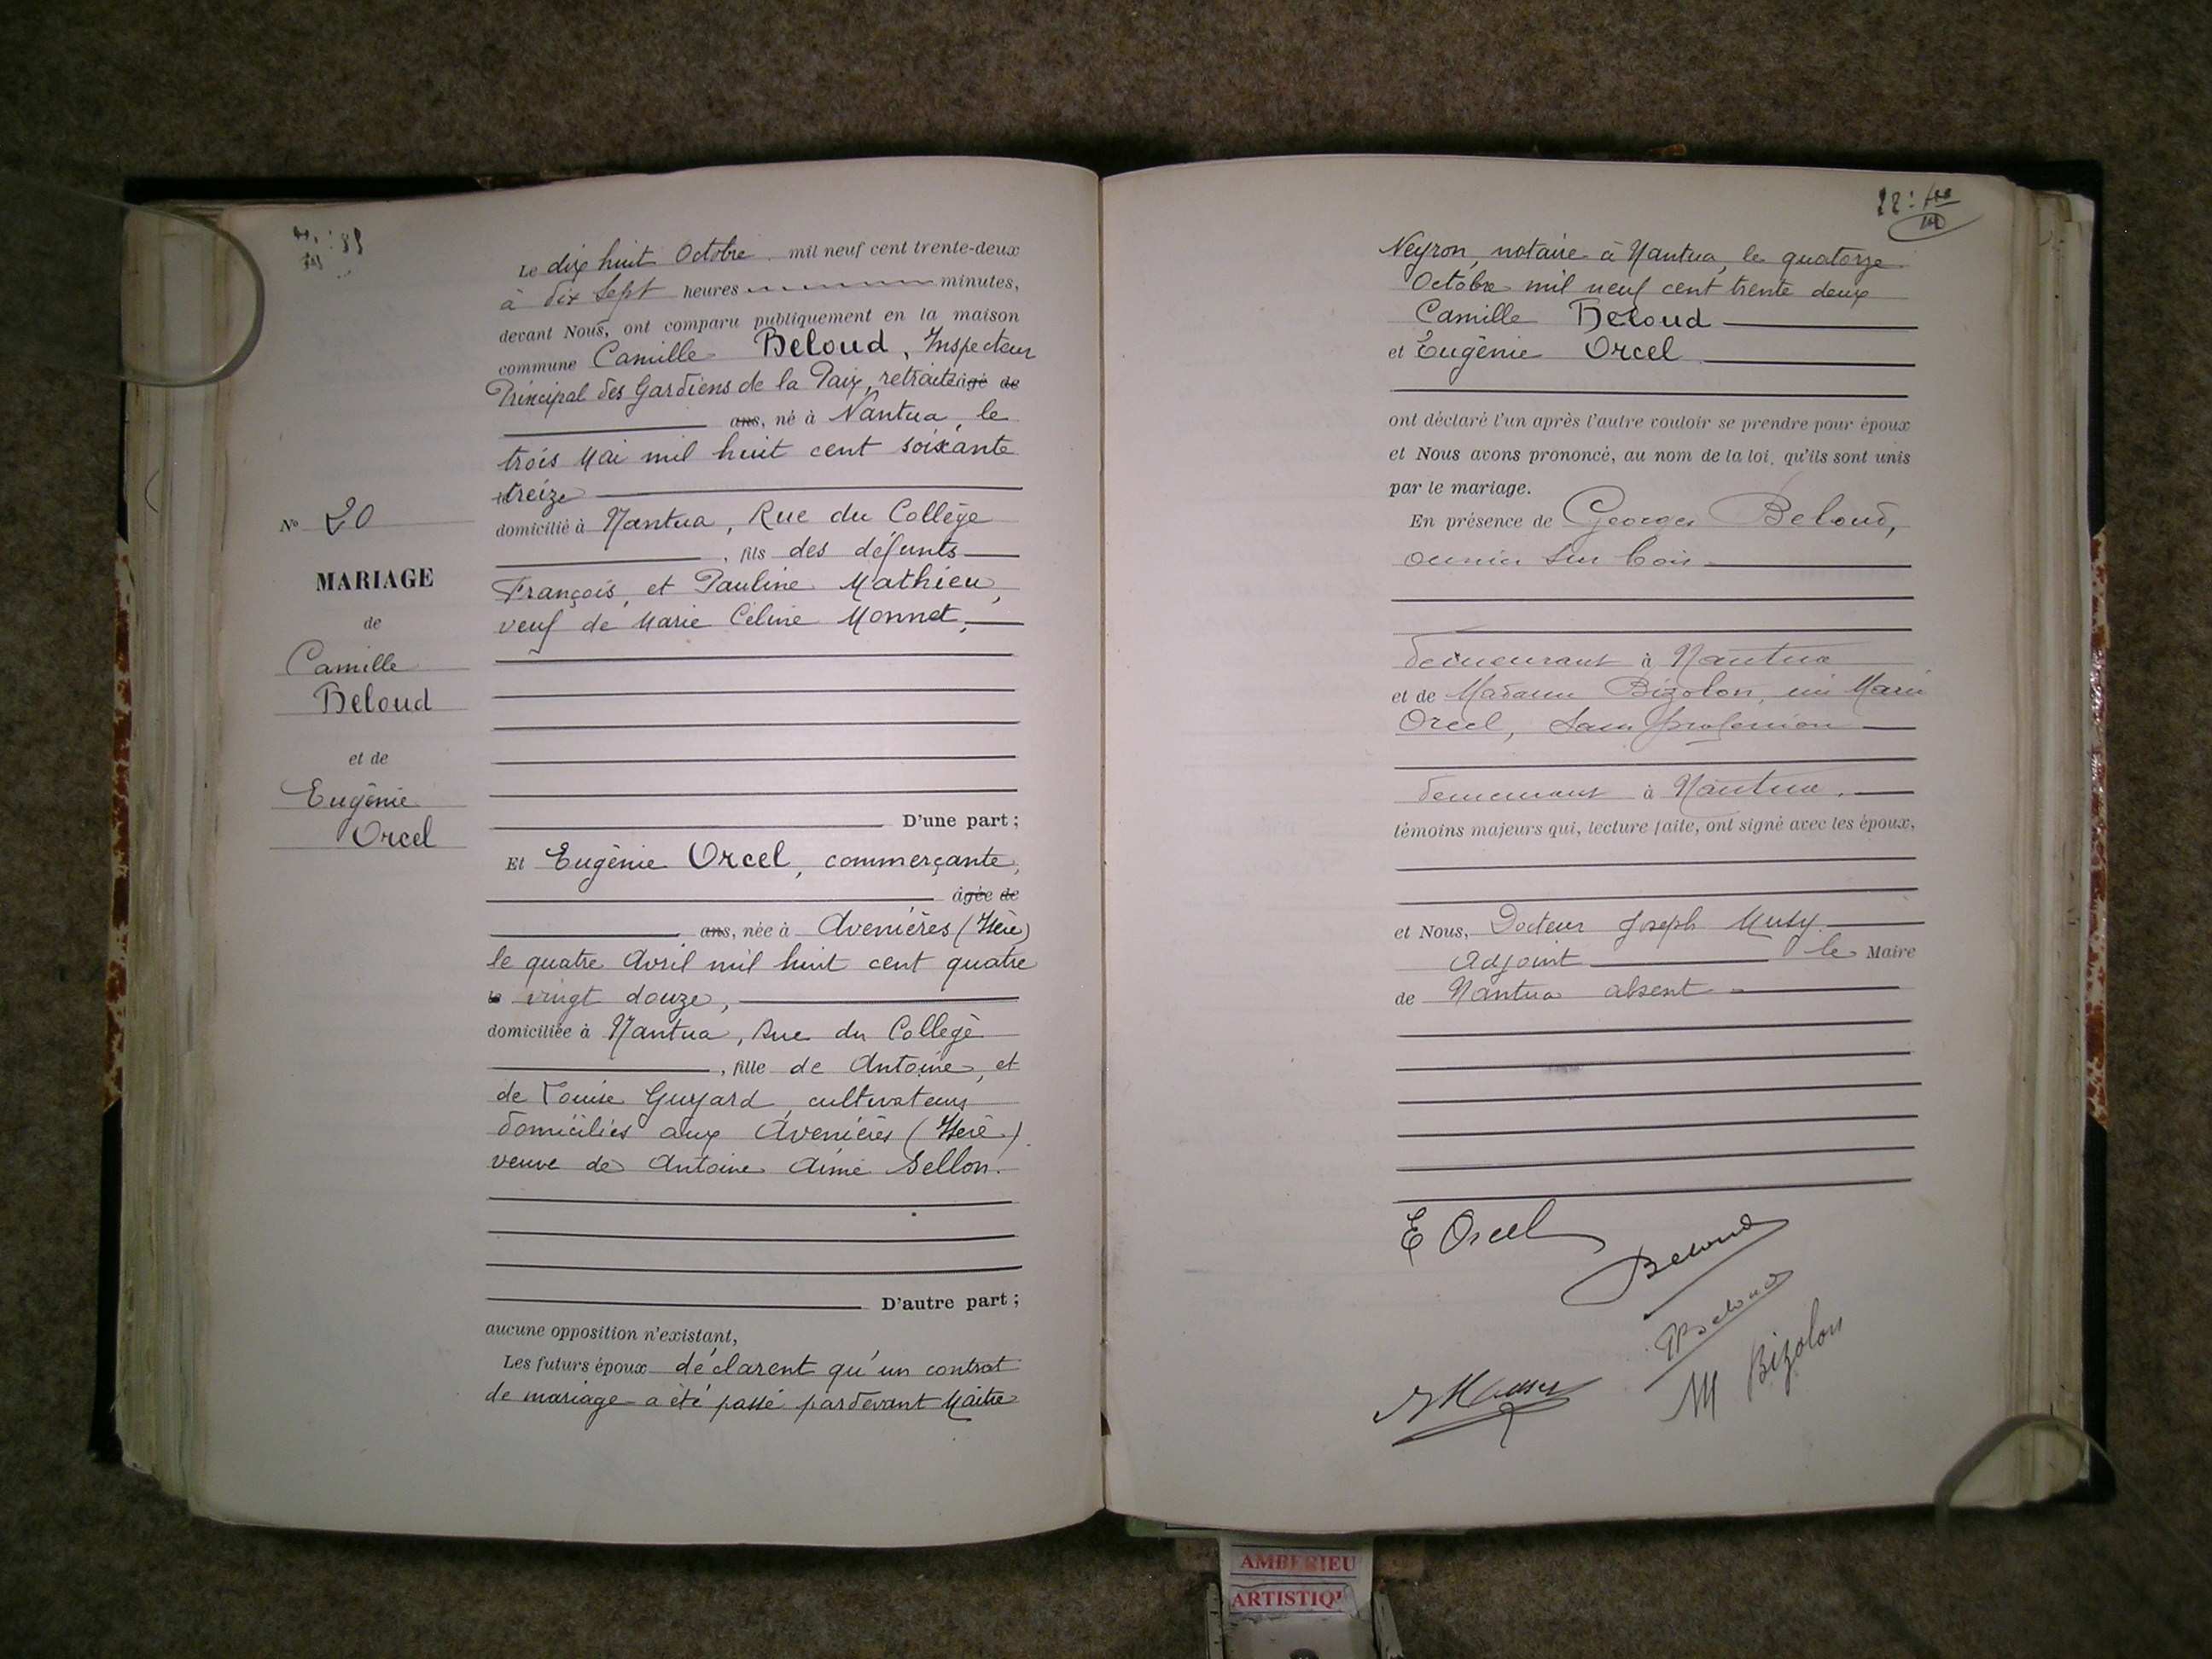 Le dix huit Octobre mil neuf cent trente-deux
à dix sept heures minutes,
devant Nous, ont comparu publiquement en la maison
commune Camille Beloud, Inspecteur
Principal des Gardiens de la Paix, retraité âgé de
ans, né à Nantua, le
trois Mai mil huit cent soixante
treize
domicilié à Nantua, Rue du Collège
, fils des défunts
François, et Pauline Mathieu,
veuf de Marie Céline Monnet,
D'une part ;
Nº 20
MARIAGE
de
Camille
Beloud
et de
Eugénie
Orcel
Et Eugénie Orcel, commerçante,
âgée de
ans, née à Avenières (Isère)
le quatre Avril mil huit cent quatre
vingt douze,
domiciliée à Nantua, Rue du Collège
, fille de Antoine, et
de Louise Guyard, cultivateurs
domiciliés aux Avenières (Isère)
veuve de Antoine Aimé Sellon.
D'autre part ;
aucune opposition n'existant,
Les futurs époux déclarent qu'un contrat
de mariage a été passé pardevant Maître
Neyron, notaire à Nantua, le quatorze
Octobre mil neuf cent trente deux
Camille Beloud
et Eugénie Orcel
ont déclaré l'un après l'autre vouloir se prendre pour époux
et Nous avons prononcé, au nom de la loi, qu'ils sont unis
par le mariage.
En présence de Georges Beloud,
ouvrier sur bois
demeurant à Nantua
et de Madame Bizolon, née Marie
Orcel, sans profession
demeurant à Nantua.
témoins majeurs qui, lecture faite, ont signé avec les époux,
et Nous, Docteur Joseph Musy
Adjoint le Maire
de Nantua absent
E Orcel
Beloud
GBeloud
M Bizolon
J Musy
AMBERIEU
ARTISTIQ